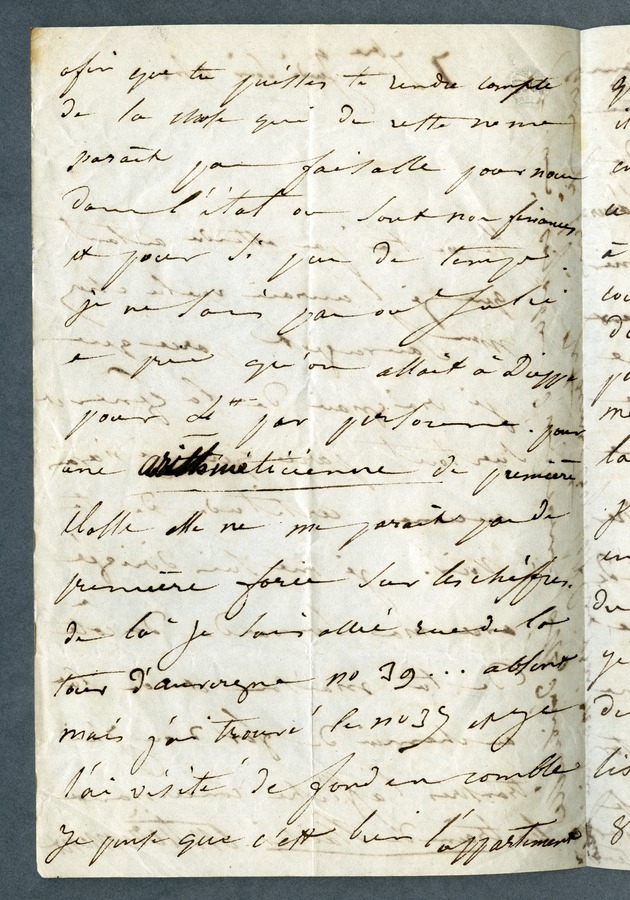 afin que tu puisses te rendre compte
de la chose qui de cette
paraît pas faisable pour nous
dans l'état où sont nos finances
et pour si peu de temps.
je ne sais pas où Julie
a pris qu'on allait à Dieppe
pour par personne. pour
une arithméticienne de première
classe elle ne me paraît pas de
première force sur les chéffres.
de là je suis allé rue de la
tour d'auvergne no 39... absent
mais j'ai trouvé le no 35 et je
l'ai visité de fond en comble
je pense que c'est bien l'appartement